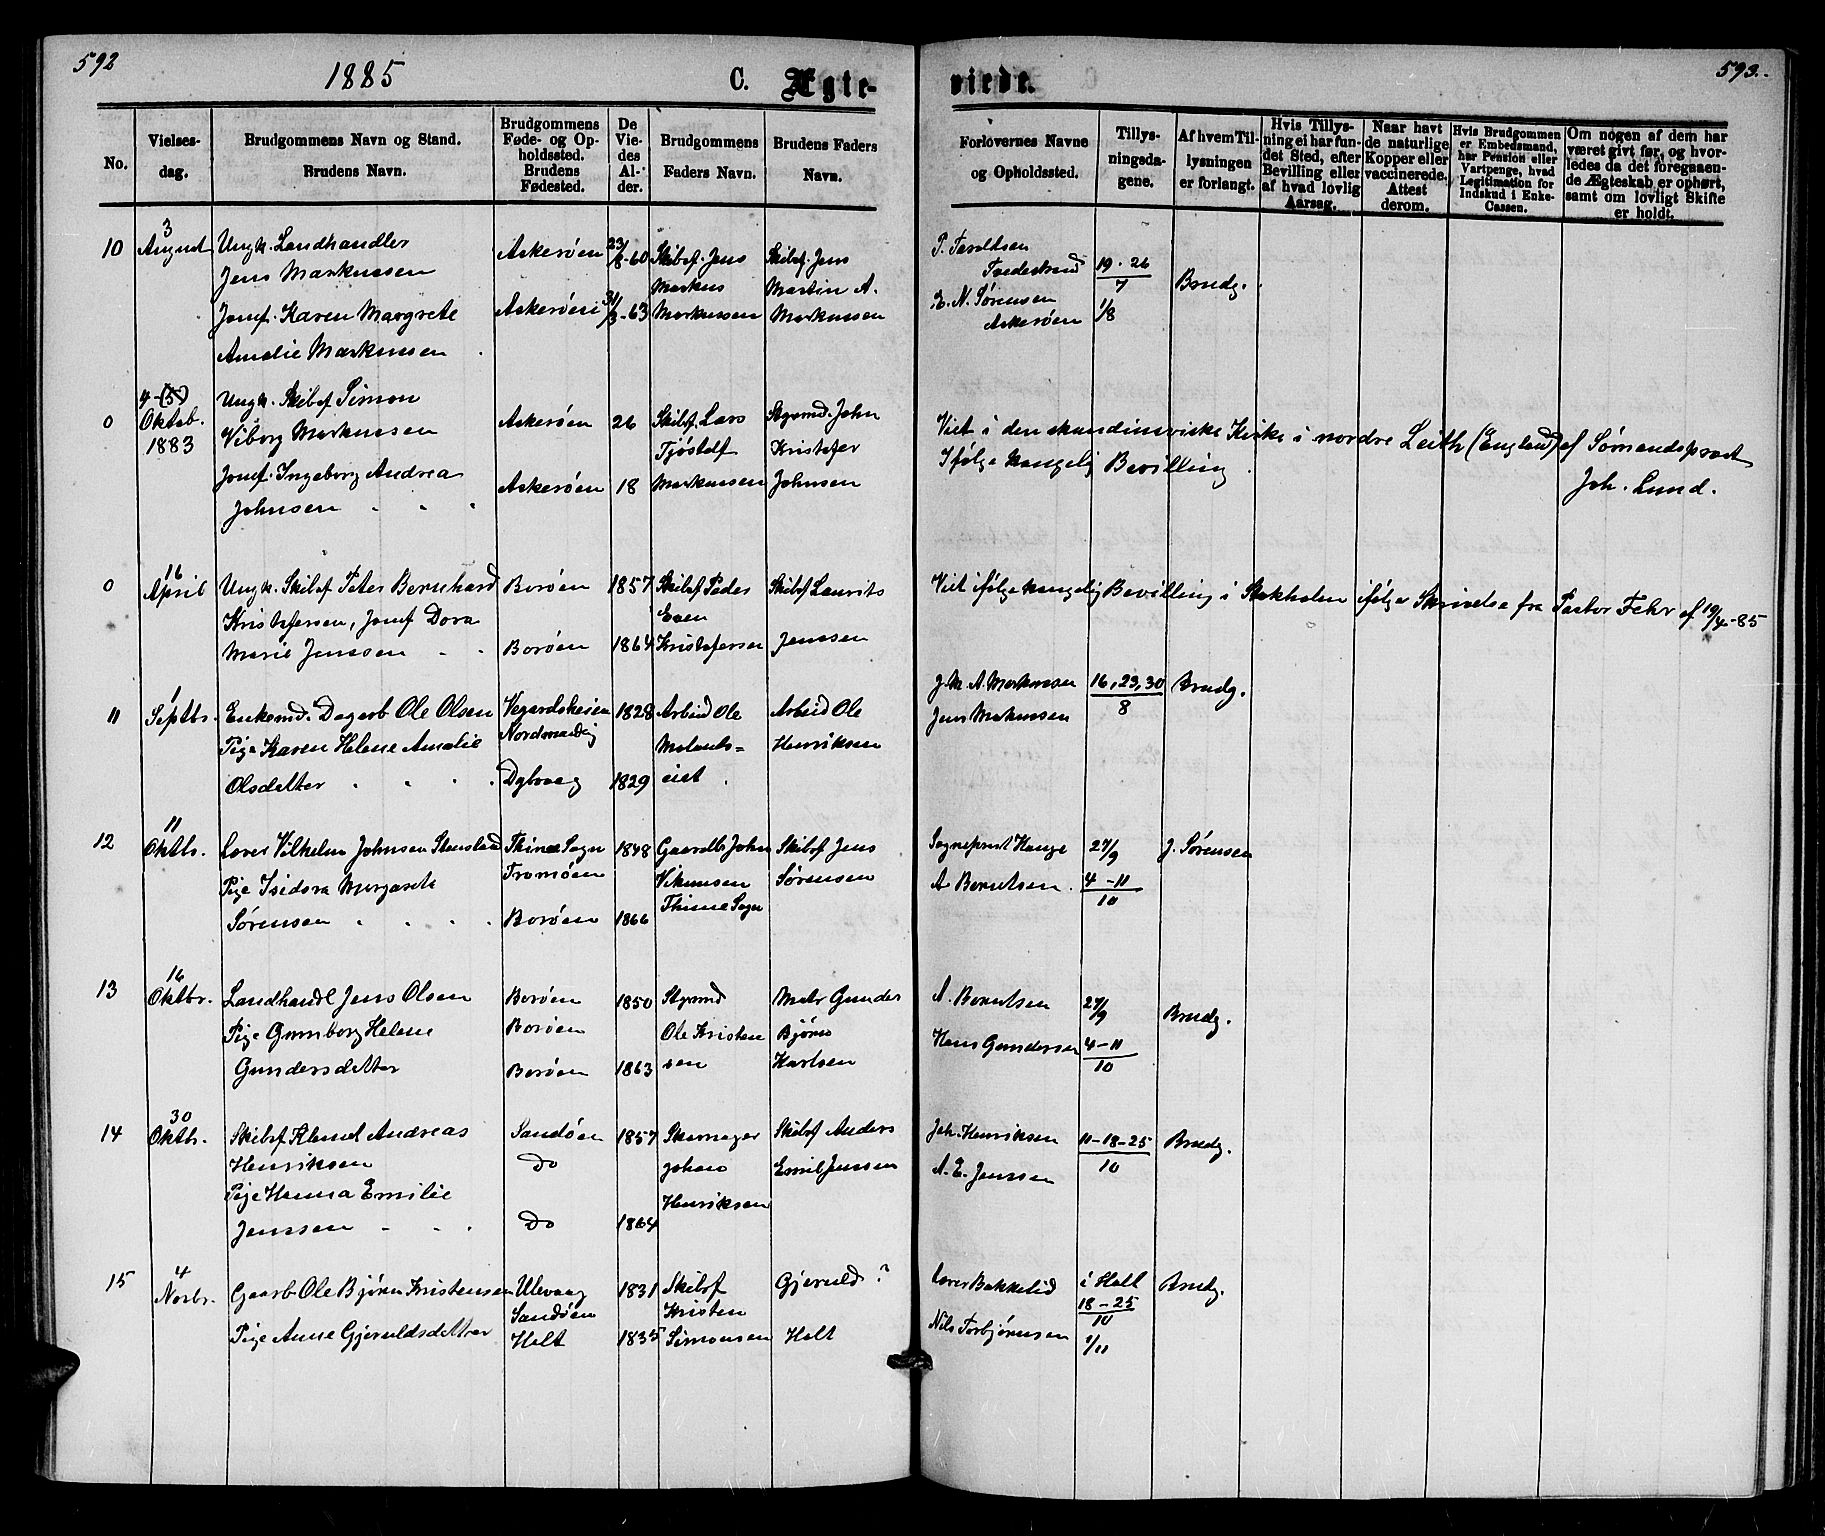 592
1885
C. Ægte-
viede.
593.
No.
Vielses-
dag.
Brudgommens Navn og Stand.
Brudens Navn.
Brudgommens
Føde- og Op-
holdssted.
Brudens
Fødested.
De
Vie-
des
Al-
der.
Brudgommens
Faders Navn.
Brudens Faders
Navn.
Forlovernes Navne
og Opholdssted.
Tillys-
ningsda-
gene.
Af hvem Til-
lysningen
er forlangt.
Hvis Tillys-
ning ei har fun-
det Sted, efter
Bevilling eller
af hvad lovlig
Aarsag.
Naar havt
de naturlige
Kopper eller
vaccinerede.
Attest
derom.
Hvis Brudgommen
er Embedsmand,
har Pension eller
Vartpenge, hvad
Legitimation for
Indskud i Enke-
Cassen.
Om nogen af dem har
været givt før, og hvor-
ledes da det foregaaen-
de Ægteskab er ophørt,
samt om lovligt Skifte
er holdt.
10
3
August
Ungk. Landhandler
Jens Markussen
Jomf. Karen Margrete
Amalie Markussen
Askerøen
Askerøen
23/8-60
31/3-63
Skibsf. Jens
Markus
Markussen
Skibsf. Jens
Martin A.
Markussen
P. Taroldsen
Tvedestrand
E. N. Sørensen
Askerøen
19. 26
7
1/8
Brudg.
0
4-(5)
Oktob.
1883
Ungk. Skibsf Simon
Viborg Markussen
Jomf. Ingeborg Andrea
Johnsen
Askerøen
Askerøen
26
18
Skibsf. Lars
Tjøstolf
Markussen
Styrmd. John
Kristofer
Johnsen
Viet i den skandinaviske Kirke i nordre Leith (England) af Sømandsprest
Ifølge Kongelig Bevilling
Joh. Lund.
0
16
April
Ungk. Skibsf Peter Bernhard
Kristofersen, Jomf Dora
Marie Jenssen
Borøen
Borøen
1857
1864
Skibsf Peder
Even
Kristofersen
Skibsf Laurits
Jenssen
Viet ifølge kongelig Bevilling i Stokholm ifølge Skrivelse fra Pastor Fehr af 19/4-85
11
1
Septbr.
Enkemd. Dagarb Ole Olsen
Pige Karen Helene Amalie
Olsdatter
Vegardsheien
Dybvaag
1828
1829
Arbeid Ole
Molands-
eiet
Arbeid Ole
Henriksen
J. M. A. Markussen
Jens Markussen
16, 23, 30
8
Brudg.
12
11
Oktbr.
Lærer Vilhelm Johnsen
Pige Isidora Margarete
Sørensen
Thime Sogn
Tromøen
Borøen
1848
1866
Gaardb John
Thime Sogn
Skibsf Jens
Sørensen
Sogneprest Hauge
A. Berntsen
27/9
4-11
10
J. Sørensen
13
16
Oktbr.
Landhandl Jens Olsen
Pige Gunborg Helene
Gundersdatter
Borøen
Borøen
Borøen
1850
1863
Styrmd
Ole Kristen
sen
Matr Gunder
Bjørn
Karlsen
A. Berntsen
Hans Gundersen
27/9
4-11
10
Brudg.
14
30
Oktbr.
Skibsf Knud Andreas
Henriksen
Pige Hanna Emilie
Jenssen
Sandøen
Do
Do
1857
1864
Skomager
Johan
Henriksen
Skibsf Anders
Emil Jenssen
Joh. Henriksen
A. E. Jenssen
11-18-25
10
Brudg.
15
4
Novbr.
Gaarb Ole Bjørn Kristensen
Pige Anne Gjeruldsdatter
Ulevaag
Sandøen
Holt
1831
1835
Skibsf
Kristen
Simonsen
Gjeruld ?
Holt
Lærer Bakkelid
Nils Torbjørnsen
i Holt
18-25
10
1/11
Brudg.